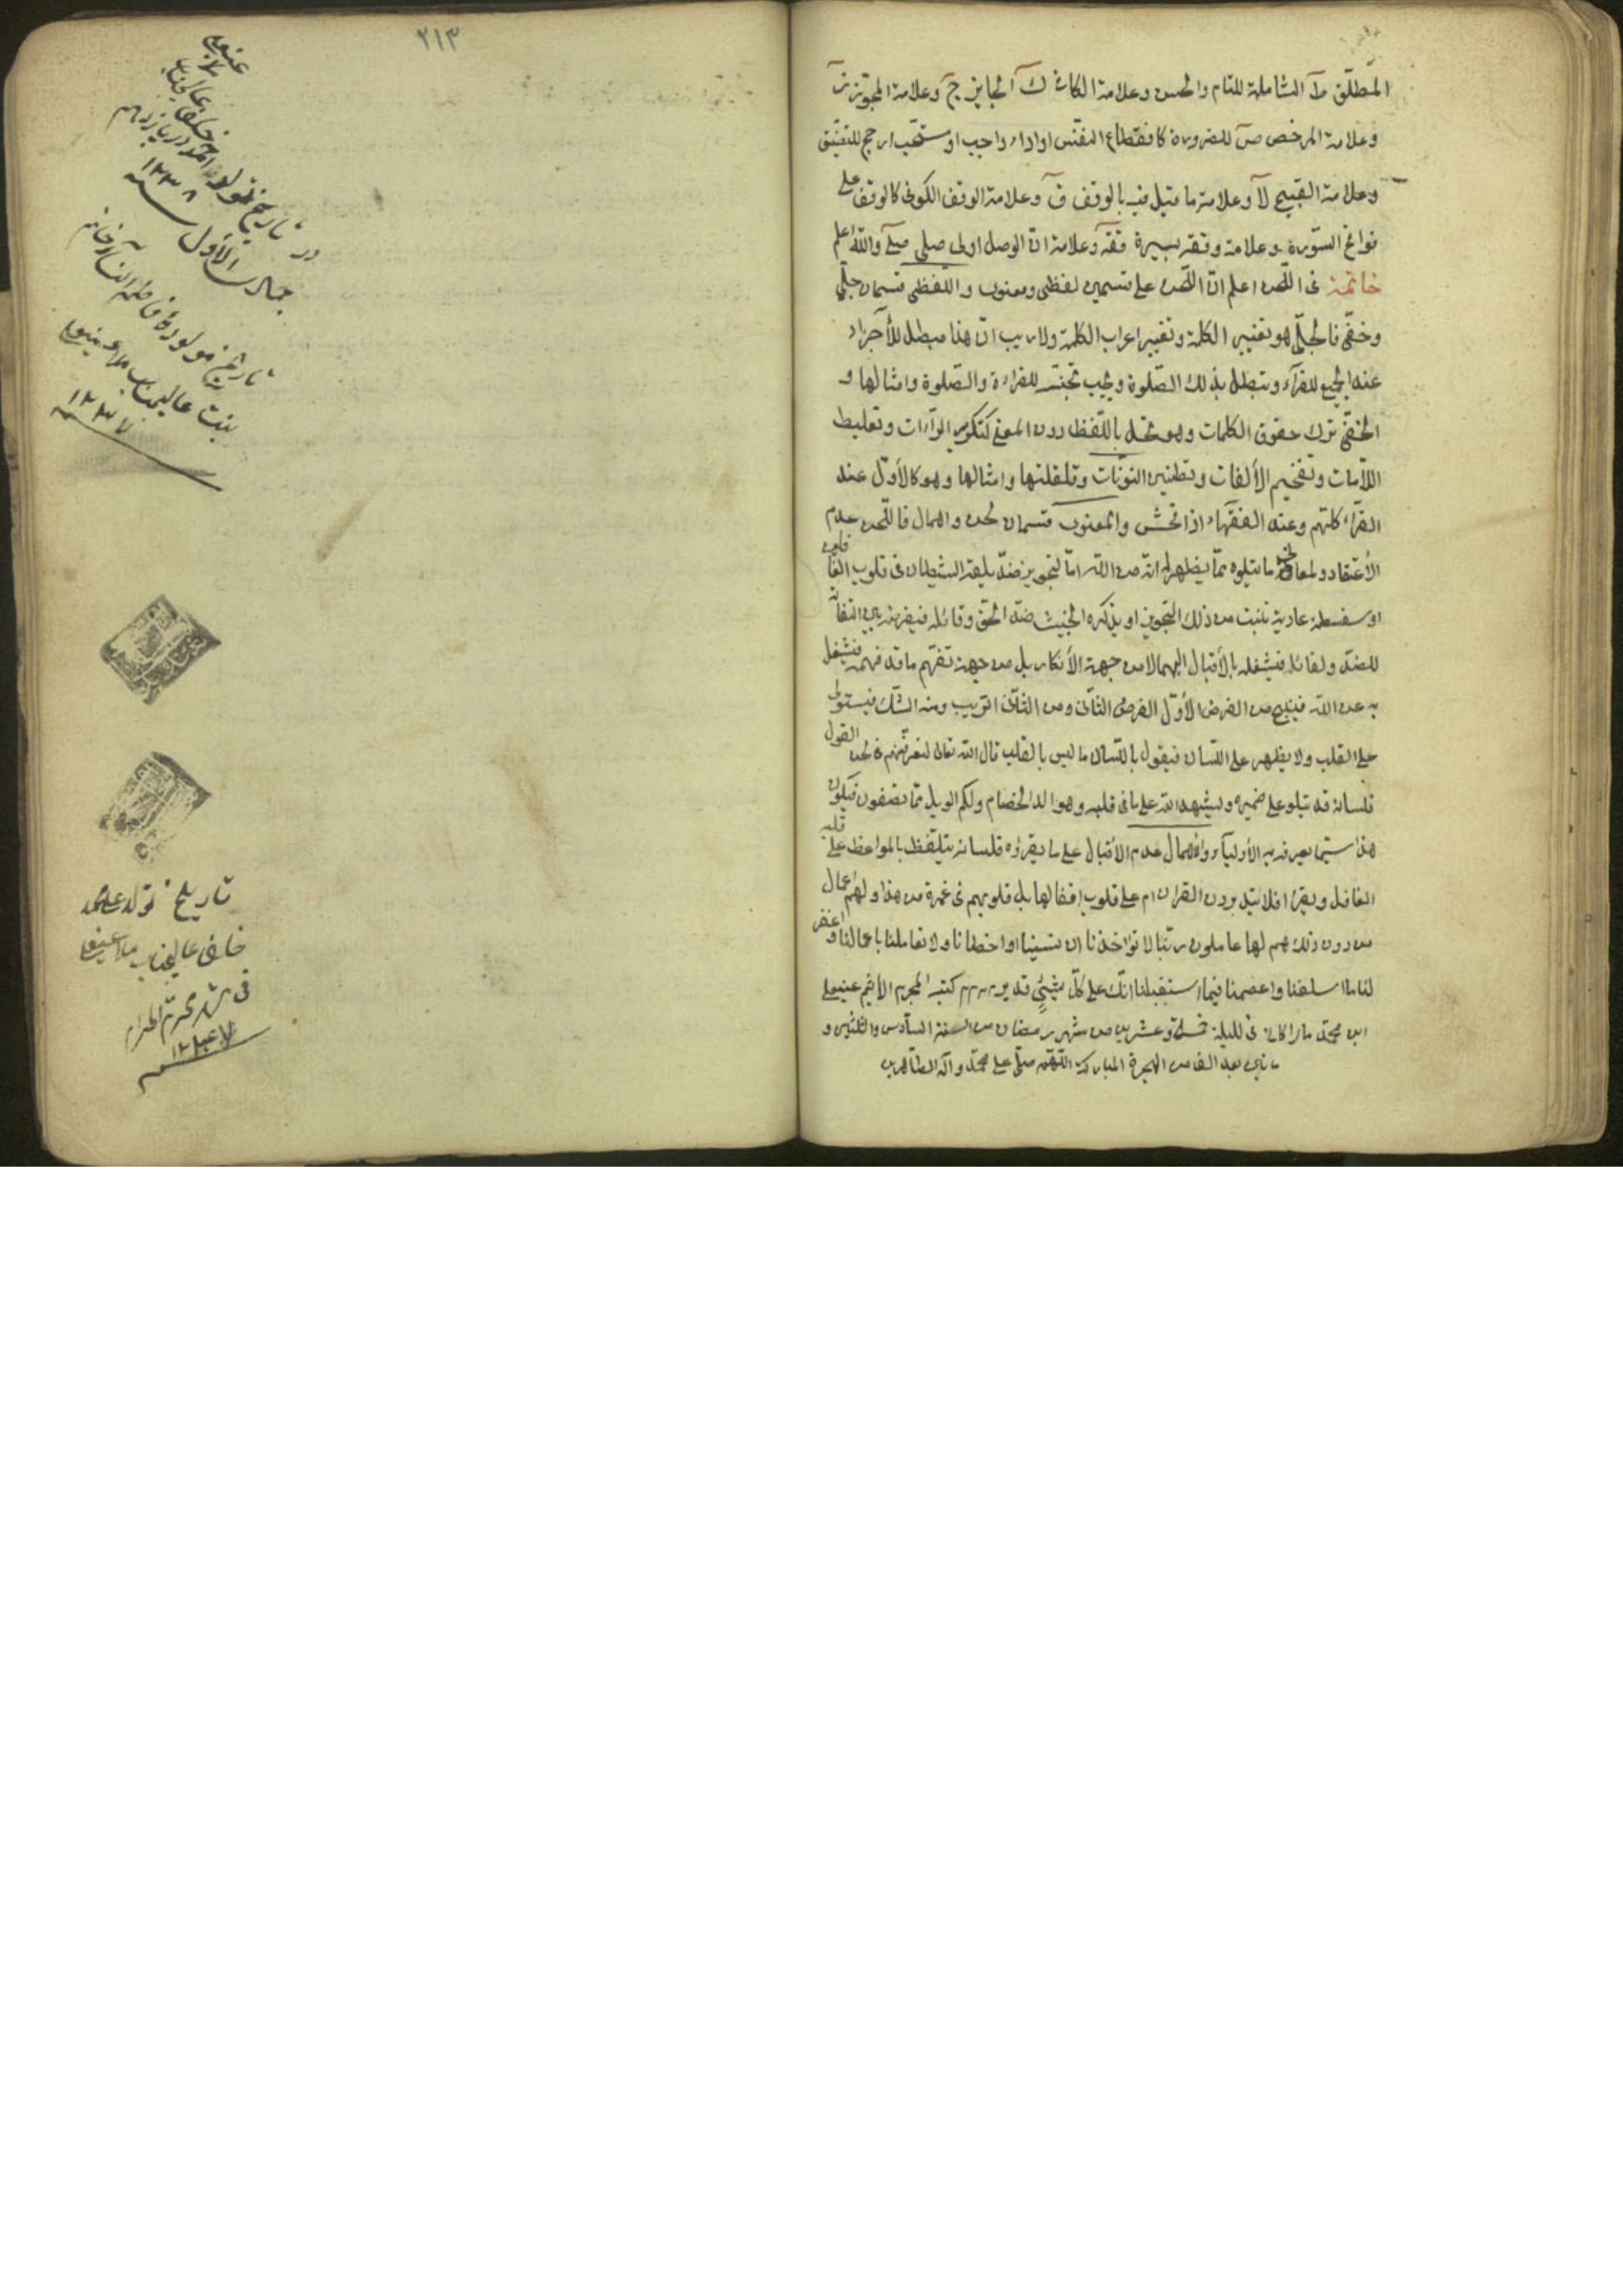 المطلق طآ الشاملة للتام والحسن وعلامة الكافى ك الجايز ج وعلامة المجوّز ز
وعلامة المرخص ص للضرورة كانقطاع النفس او اداء واجب او مستحب ارجح للتضيق
وعلامة القبيح لا وعلامة ما قيل فيه بالوقف ق وعلامة الوقف الكوفى كالوقف على
فواتح السّورة وعلامة وقفة يسيرة قفه وعلامة انّ الوصل اولى صلى صلے والله اعلم
خاتمة فى اللّحن اعلم انّ اللّحن على قسمين لفظى ومعنوى واللّفظى قسمان جلّى
وخفّى فالجلّى هو تغيير الكلمة وتغيير اعراب الكلمة ولا ريب انّ هذا مبطل للأجزاء
عند جميع القرّاء وتبطل بذلك الصّلوة ويجب تجنبه للقراءة والصّلوة وامثالها و
الخفّى ترك حقوق الكلمات وهو مخل باللّفظ دون المعنى كتكرير الرّاءات وتغليظ
اللّامات وتفخيم الألفات وتطنين النونات وقلقلتها وامثالها وهو كالأوّل عند
القرّاء كلّهم وعند الفقهاء اذا فحش والمعنوى قسمان لحن واهمال فاللّحن عدم
الأعتقاد لمعانى ما يتلوه ممّا يظهر له انّه من الله امّا لتجويز ضدّ يلقيه الشيطان فى قلوب
او سفسطة عادية تنبت من ذلك التجويز او يذكره الخبيث ضدّ الحق وقائله فيفرضه
للضدّ ولقائله فيشغله بالأقبال اليهما لا من جهة الأنكار بل من جهة تفهّم ما قد فهمه فيشغل
به عن الله فينتج من الفرض الأوّل الفرض الثّانى ومن الثّانى الرّيب ومنه الشكّ فيستولى
على القلب ولا يظهر على اللّسان فيقول باللّسان ما ليس بالقلب قال الله تعالى لتعرفنّهم فى لحن القول
فلسانه قد يتلو على ضميره ويشهد الله على ما فى قلبه وهو الد الخصام ولكم الويل ممّا تصفون فيكون
هذا سيما يعرفه به الأولياء والأهمال عدم الأقبال على ما يقراؤه فلسانه يتلفّظ بالمواعظ على قلبه
الغافل ويقرا افلا يتدبرون القران ام على قلوب اقفالها بل قلوبهم فى غمرة من هذا ولهم اعمال
من دون ذلك هم لها عاملون ربّنا لا تؤاخذنا ان نسينا او اخطانا ولا تعاملنا باعمالنا واغفر
لنا ما اسلفنا واعصمنا فيما استقبلنا انّك على كلّ شيئٍ قدير كتبه المجرم الأثيم عينعلى
ابن محمّد مارا كانى فى لليلة خمسة وعشرين من شهر رمضان من السنة السّادس والثلثين و
ماتين بعد الف من الهجرة المباركة اللّهم صلّى على محمّد وآله الطّاهرين
٢١٣
در تاريخ تولد احمد در يازدهم
جمادى الأول سنه ١٢٣٨
خلف عاليجناب
ملا عينعلى
تاريخ مولوده فاطمه النسا خانم
بنت عاليجناب ملا عينعلى
سنه ١٢٣٧
تاريخ تولد على محمد
خلف عاليجناب ملا عينعلى
فى شهر محرّم الحرام